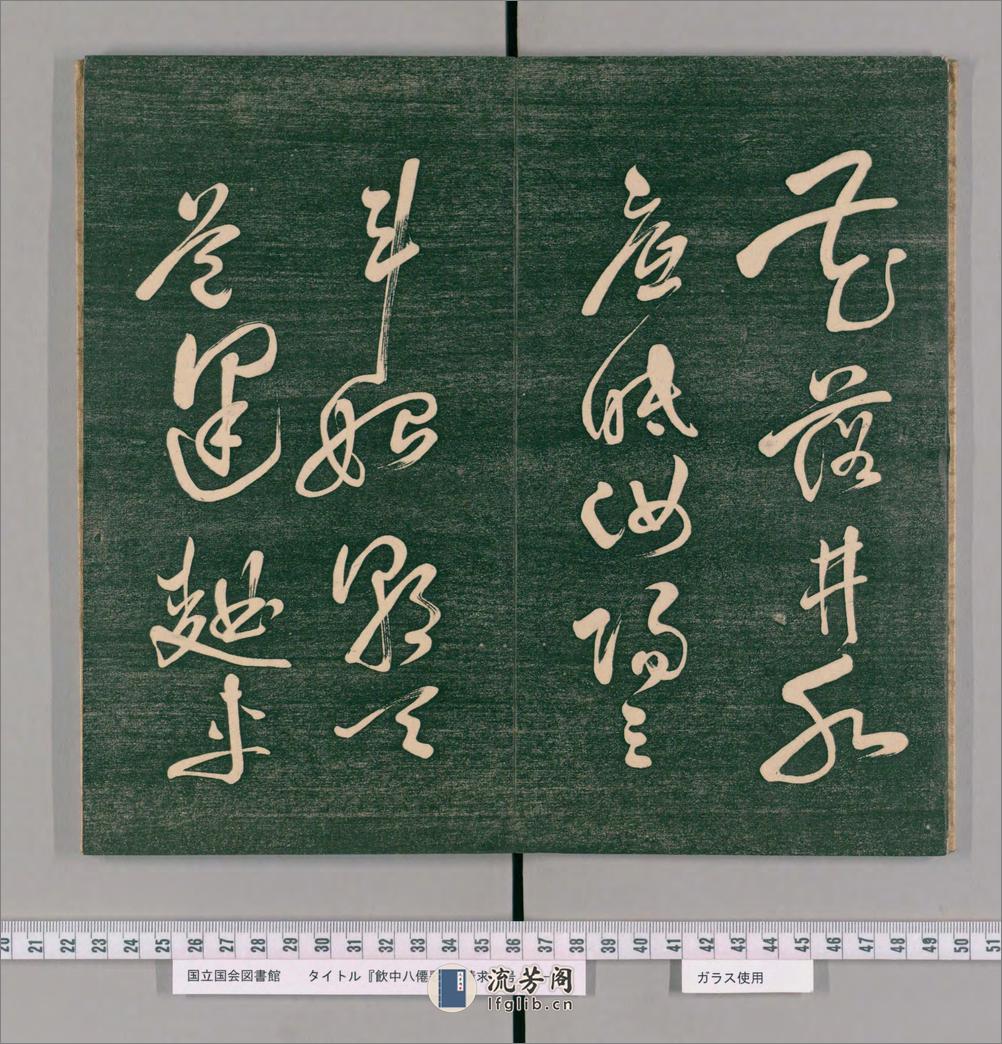 花落井水
底眠汝陽三
斗始朝天
道逢麯車
20 21 22 23 24 25 26 27 28 29 30 31 32 33 34 35 36 37 38 39 40 41 42 43 44 45 46 47 48 49 50 51
国立国会図書館 タイトル『飲中八僊 求 号
ガラス使用
流芳阁
lfglib.cn